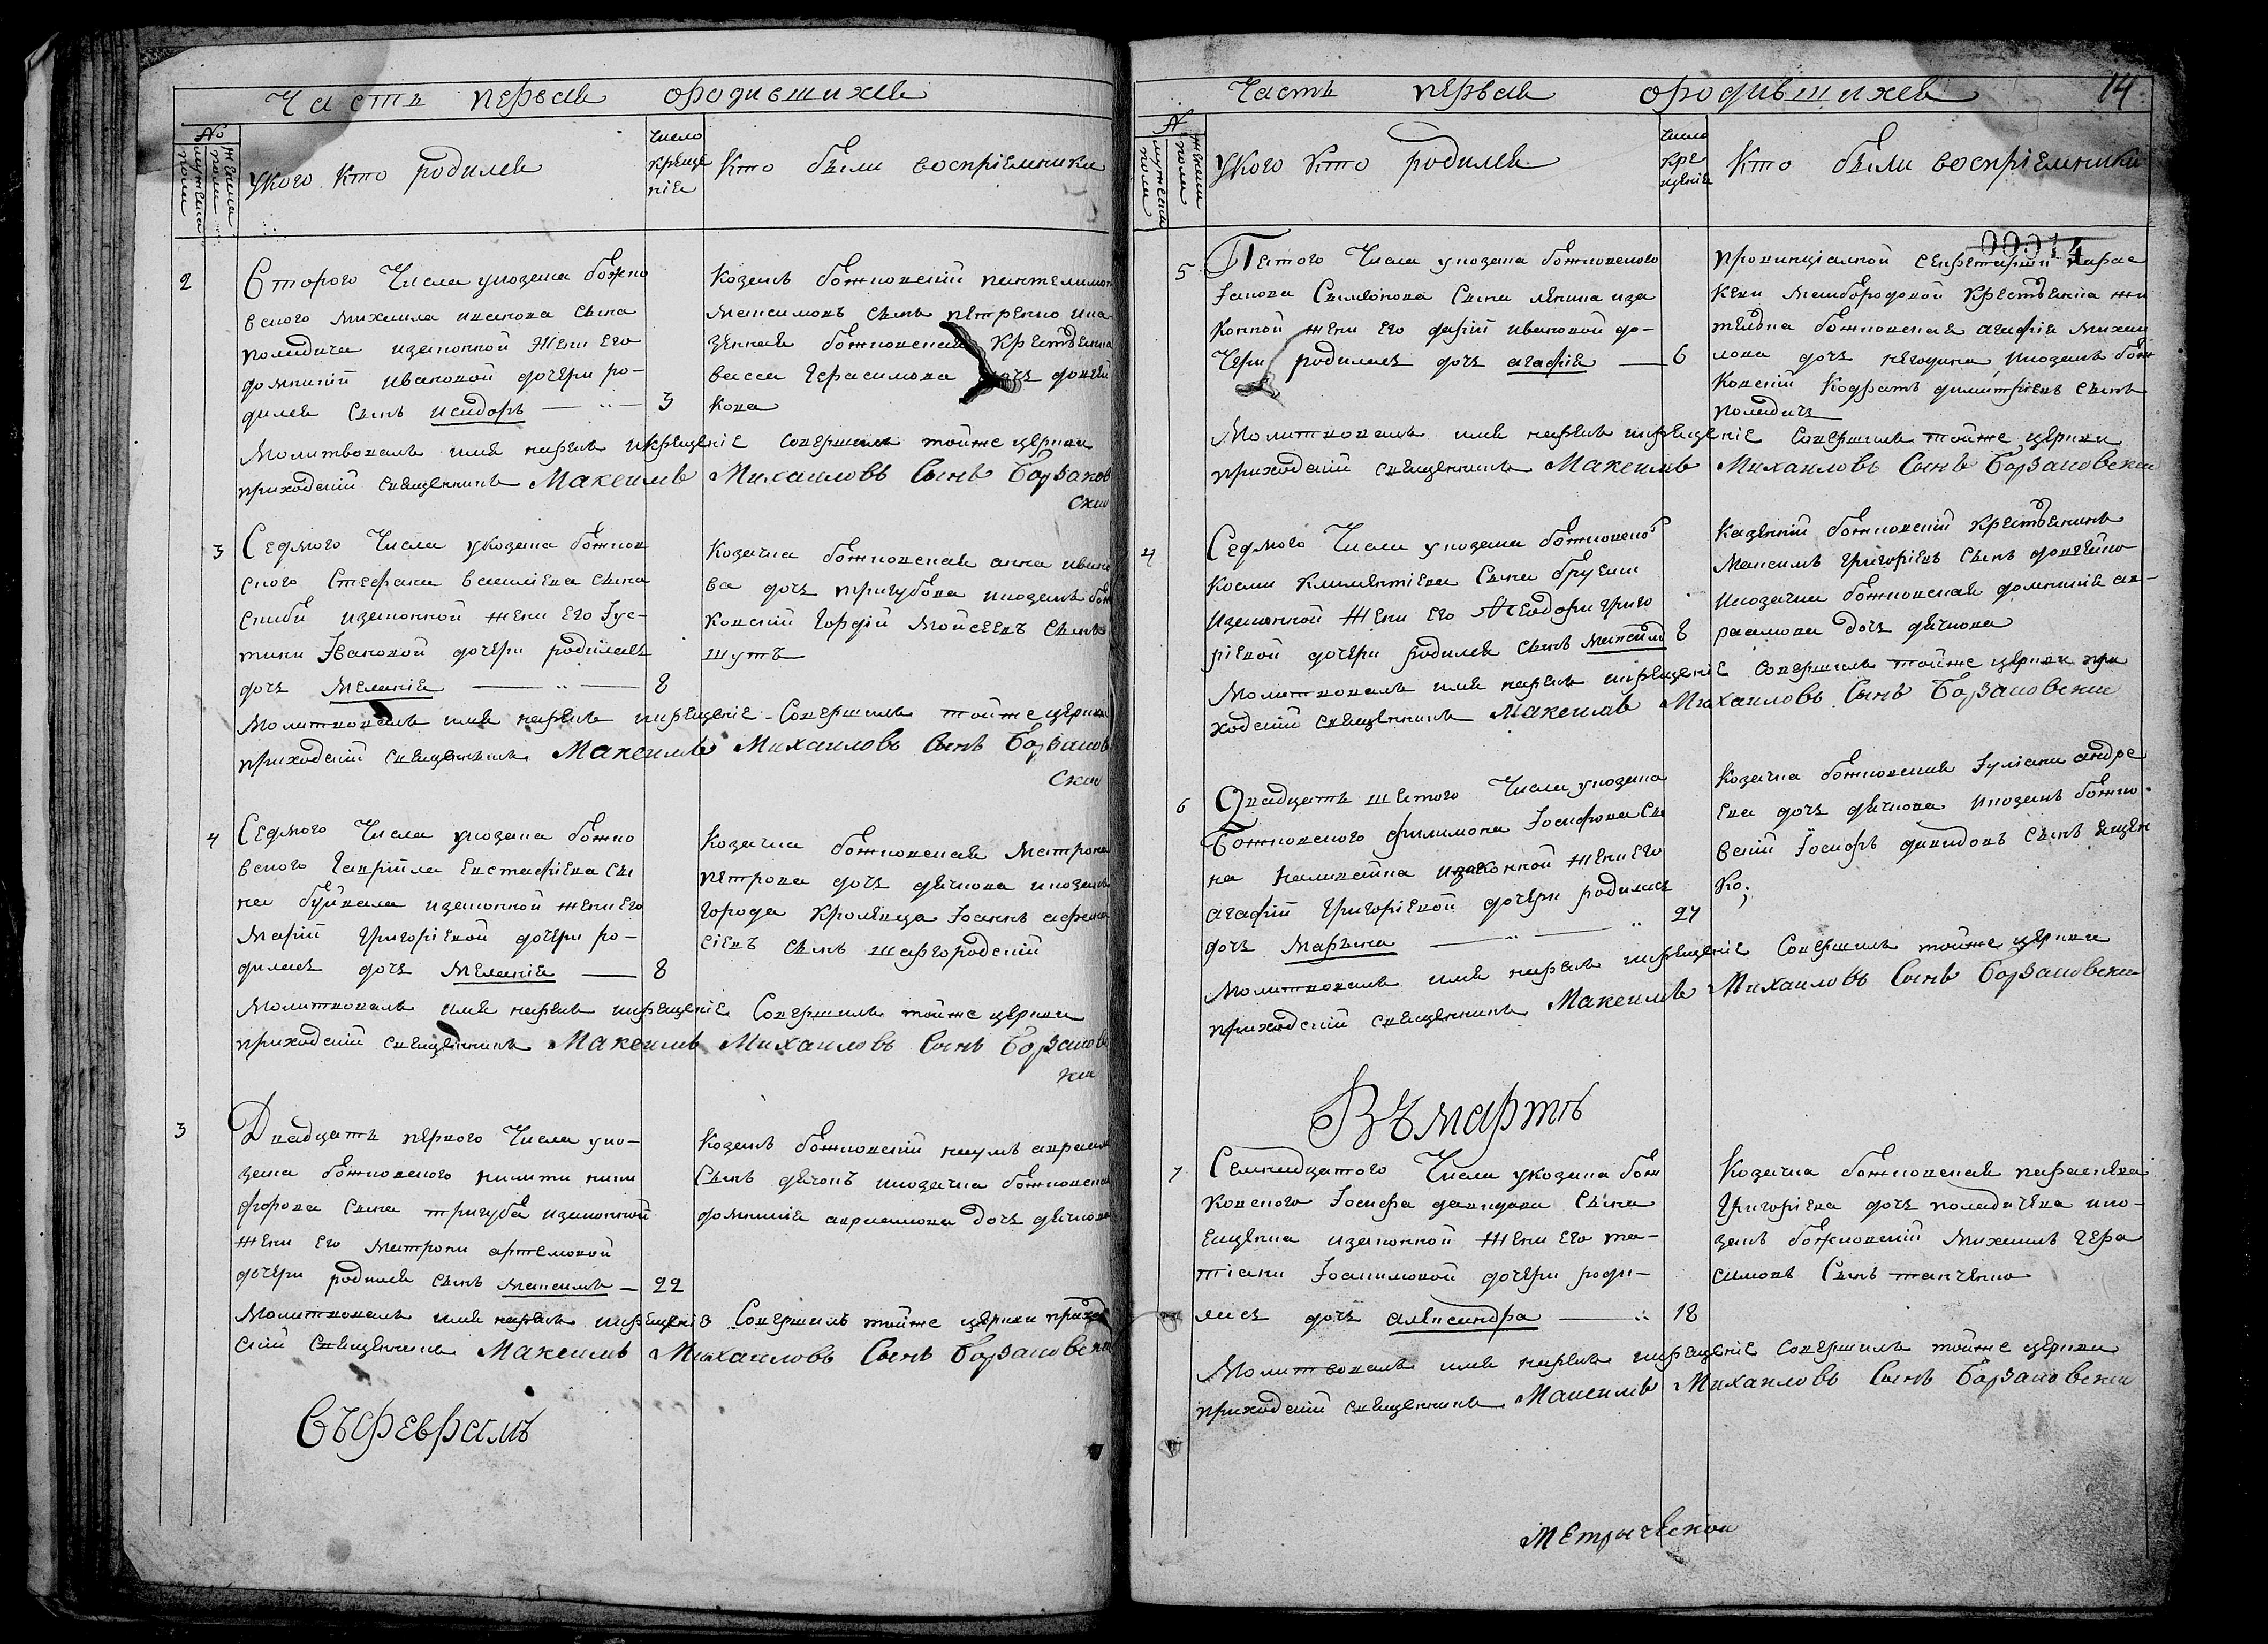 Часть первая
ородившихся
№
мужеска пола
женска пола
укого кто родился
число крещенія
Кто были воспріемники
2
Второго Числа укозака божко
вского михаила иванова сына
поладича изаконной жени его
домникій ивановой дочери ро-
дился сынъ исидоръ
3
Козакъ божковскій пантелимон
максимовъ сынъ петренко ика
зенная божковская крестьянка
васса герасимова дочь довгий
кова
Молитвовалъ имя нарекъ икрещеніе совершилъ тойже церкви
приходскій священникъ Максимъ Михаиловъ Сынъ Борзаков
ски
3
Седмого Числа укозака божков
ского Стефана василіева сына
скибы изаконной жени его Іус-
тини Івановой дочери родилась
дочь мелания
8
Козачка божковская анна ивано
ва дочь тригубова икозакъ бож
ковскій гордій мойсеевъ сынъ
шутъ
Молитвовалъ имя нарекъ икрещеніе совершилъ тойже церкви
приходскій священникъ Максимъ Михаиловъ Сынъ Борзаков
ски
4
Седмого Числа укозака божко
вского гавріила евстафіева сы
на буйвала изаконной жени его
маріи григоріевой дочери ро-
дилась дочь мелания
8
Козачка божковская матрона
петрова дочь дячкова икозакъ
города кролевца Іоаннъ афана
сіевъ сынъ шаргородскій
Молитвовалъ имя нарекъ икрещеніе Совершилъ тойже церкви
приходскій священникъ Максимъ Михаиловъ Сынъ Борзаков
ки
3
Двадцать первого Числа уко-
зака божковского никити ники
форова сына тригуба изаконной
жени его матрони артемовой
дочери родился сынъ максимъ
22
Козакъ божковскій наумъ авраам
Сынъ дячокъ икозачка божковская
домникія авраамова дочь дячкова
Молитвовалъ имя нарекъ икрещеніе Совершилъ тойже церкви приход
скій священникъ Максимъ Михаиловъ Сынъ Борзаковски
Въфевралѣ
Часть первая
ородившихся
14
№
мужеска пола
женска пола
укого кто родился
число крещенія
Кто были воспріемники
00014
5
Пятого Числа укозака божковского
Іакова Симеонова Сына иза
конной жени его дарій ивановой до-
чери родилась дочь агафія
6
провинціалной секретарши парас
кеви крестьянка жи
телка божковская агафія михаи
лова дочь икозакъ бож
ковскій Кодратъ димитріевъ сынъ
поладичъ
Молитвовалъ имя нарекъ икрещеніе совершилъ тойже церкви
приходскій священникъ Максимъ Михаиловъ Сынъ Борзаковски
4
Седмого Числа укозака божковског
Косми климентіева Сына
изаконной жени его Феодори григо
ріевой дочери родился сынъ максим
8
Казенній божковскій крестьянинъ
максимъ григоріевъ сынъ довгейко
икозачка божковская домникія ав-
раамова дочь дячкова
Молитвовалъ имя нарекъ икрещеніе совершилъ тойже церкви при
ходскій священникъ Максимъ Михаиловъ Сынъ Борзаковски
6
Двадцать шестого Числа укозака
Божковского филимона Іосифова сы
на изаконной жени его
агафіи григоріевой дочери родилась
дочь марьяна
27
Козачка божковская Іуліана андре
ева дочь дячкова икозакъ божко
вскій Іосифъ давидовъ сынъ ященко;
Молитвовалъ имя нарекъ икрещеніе Совершилъ тойже церкви
приходскій священникъ Максимъ Михаиловъ Сынъ Борзаковски
Въ мартѣ
7
Семнадцатого Числа укозака бож
ковского Іосифа давидова Сына
ещенка изаконной жени его та-
тіани Іоакимовой дочери роди-
лась дочь александра
18
Козачка божковская параскева
григоріева дочь поладичева ико-
закъ божковскій михаилъ гера
симовъ Сынъ ткаченко
Молитвовалъ имя нарекъ икрещеніе совершилъ тойже церкви
приходскій священникъ Максимъ Михаиловъ Сынъ Борзаковски
Метрической